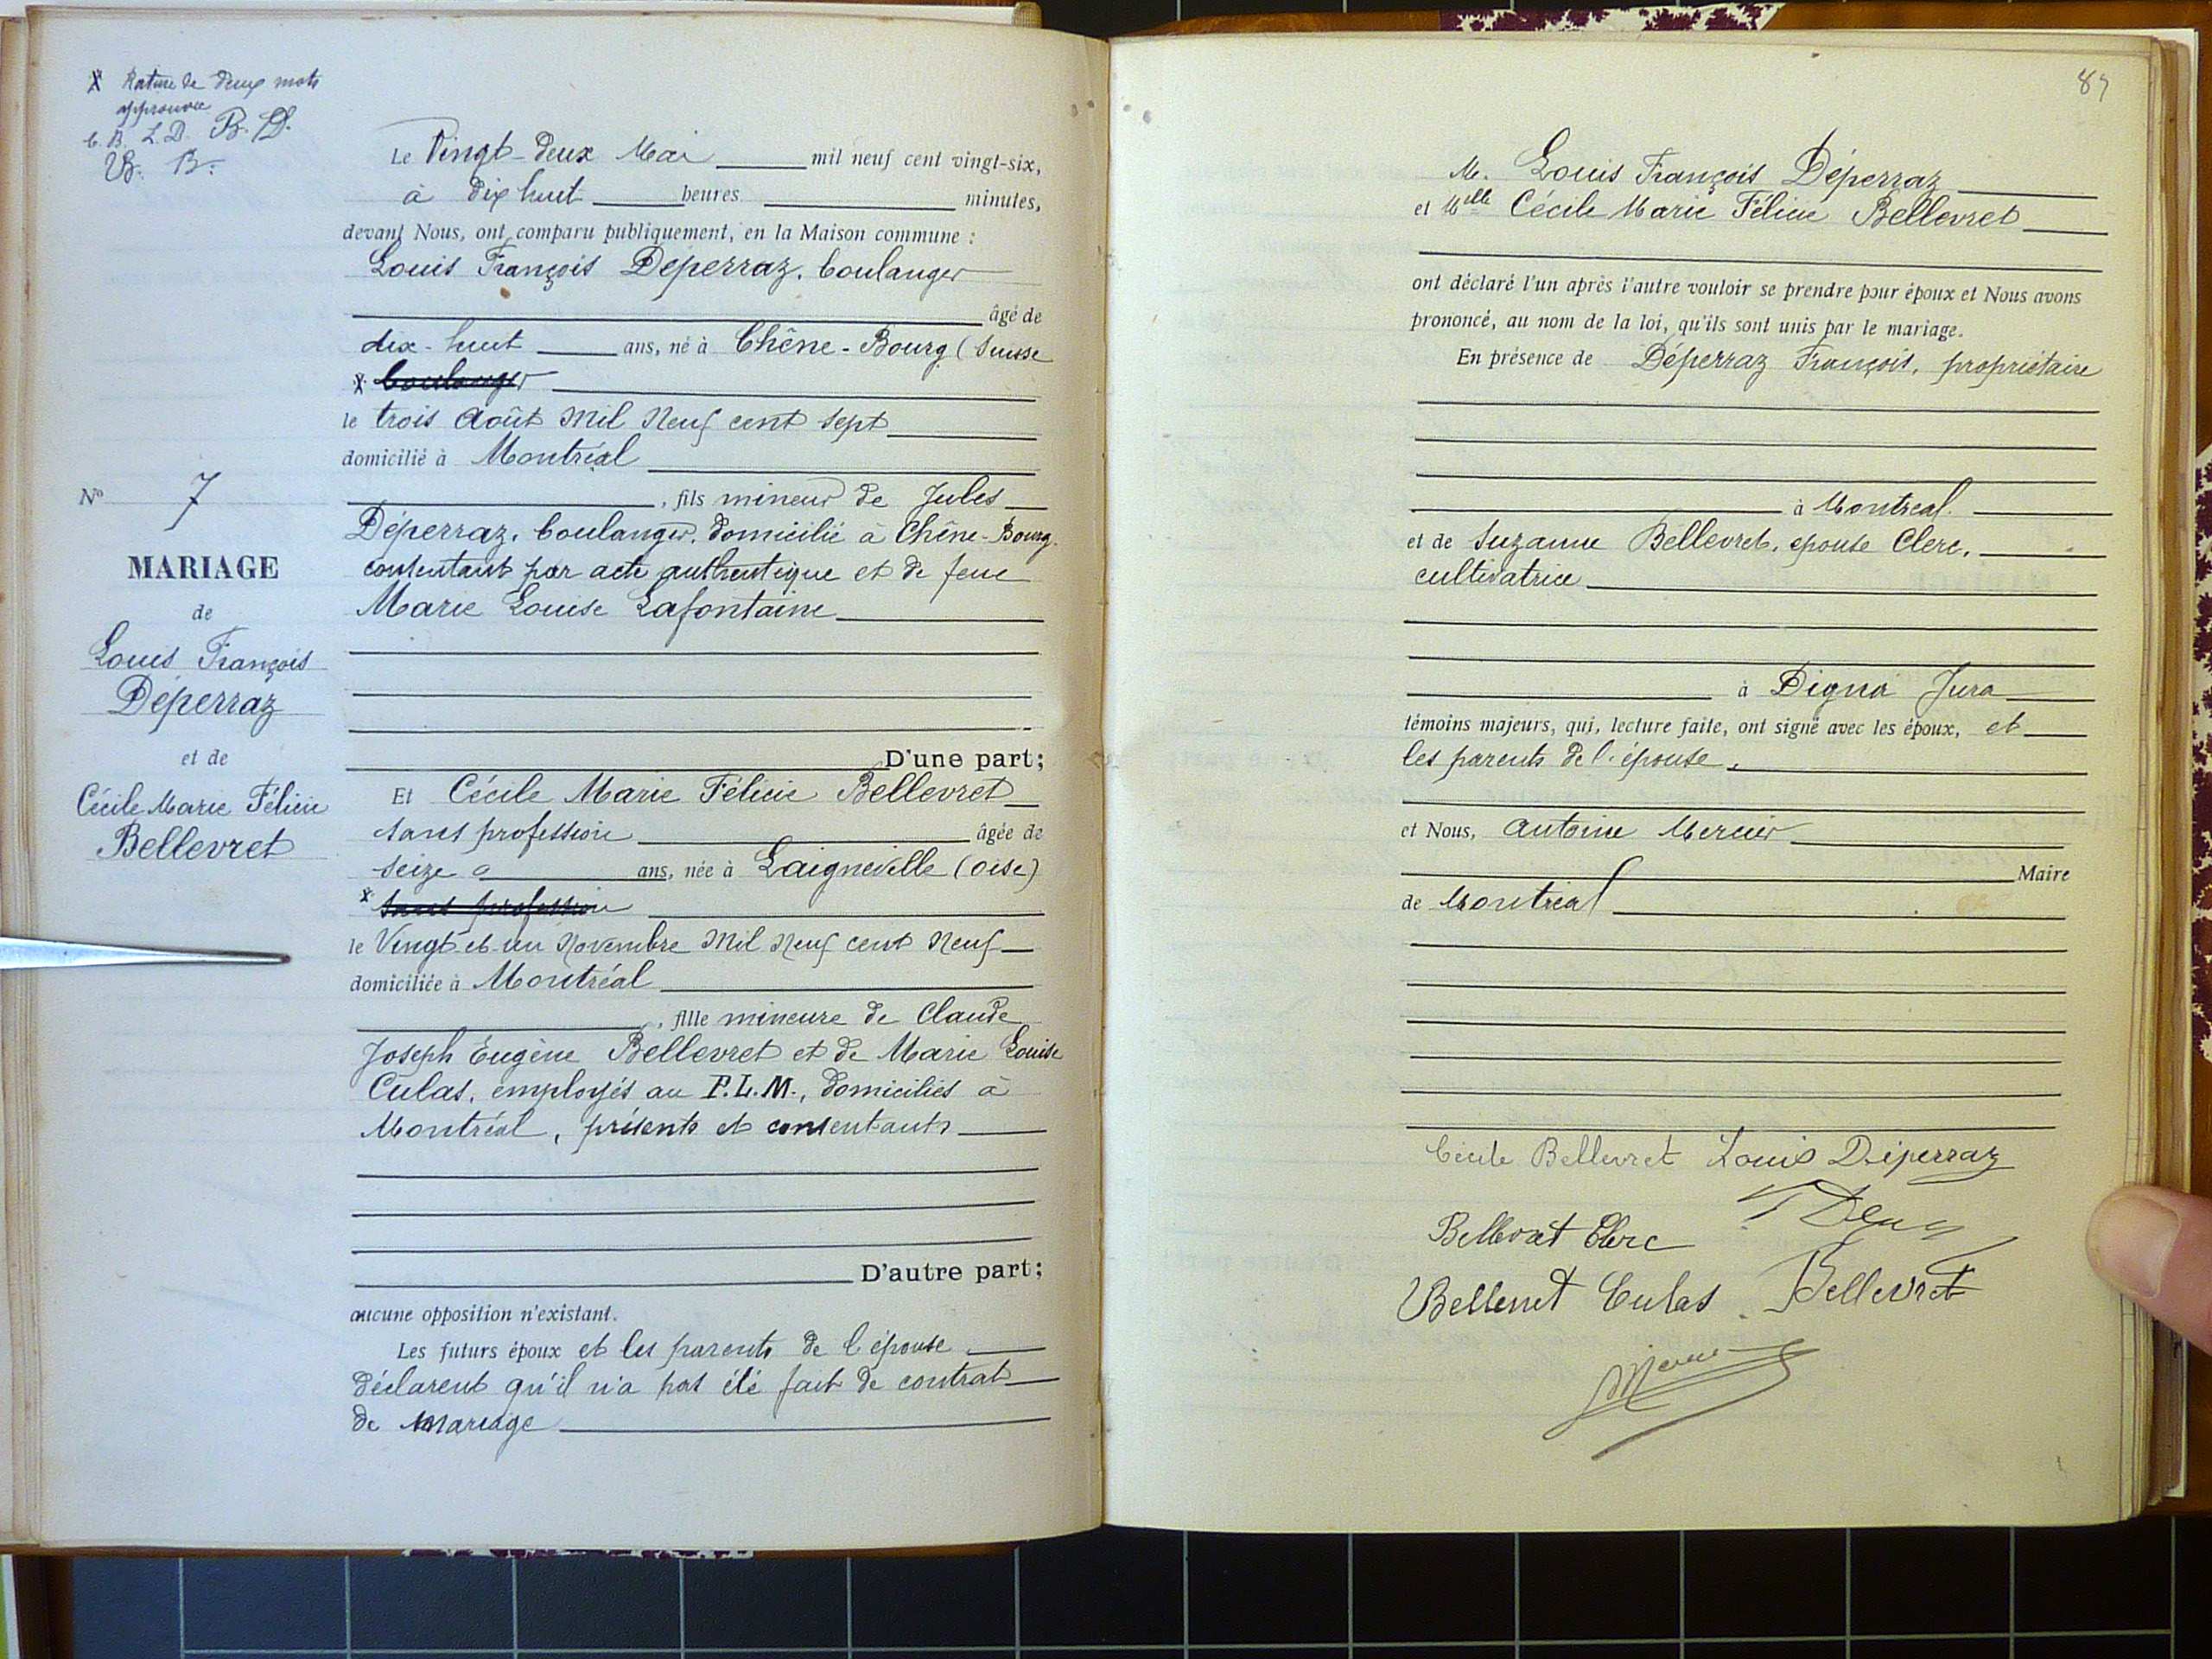 X Rature de deux mots
approuvée
C. B. L. D. B. D.
B. B.
N° 7
MARIAGE
de
Louis François
Déperraz
et de
Cécile Marie Félicie
Bellevret
Le Vingt-deux Mai mil neuf cent vingt-six,
à dix huit heures minutes,
devant Nous, ont comparu publiquement, en la Maison commune :
Louis François Déperraz, boulanger
âgé de
dix-huit ans, né à Chêne-Bourg (Suisse
X boulanger
le trois Août Mil Neuf cent sept
domicilié à Montréal
, fils mineur de Jules
Déperraz, boulanger, domicilié à Chêne-Bourg
consentant par acte authentique et de feue
Marie Louise Lafontaine
D'une part;
Et Cécile Marie Félicie Bellevret
sans profession âgée de
seize ans, née à Laigneville (Oise)
X sans profession
le Vingt-et-un Novembre Mil Neuf cent Neuf
domiciliée à Montréal
, fille mineure de Claude
Joseph Eugène Bellevret et de Marie Louise
Culas, employés au P.L.M., domiciliés à
Montréal, présents et consentants
D'autre part;
aucune opposition n'existant.
Les futurs époux et les parents de l'épouse
déclarent qu'il n'a pas été fait de contrat
de mariage
87
M. Louis François Déperraz
et Melle Cécile Marie Félicie Bellevret
ont déclaré l'un après l'autre vouloir se prendre pour époux et Nous avons
prononcé, au nom de la loi, qu'ils sont unis par le mariage.
En présence de Déperraz François, propriétaire
à Montréal.
et de Suzanne Bellevret, épouse Clerc,
cultivatrice
à Digna Jura
témoins majeurs, qui, lecture faite, ont signé avec les époux, et
les parents de l'épouse,
et Nous, Antoine Mercier
Maire
de Montréal
Cécile Bellevret Louis Déperraz
Bellevret Clerc
Bellevret Culas Bellevret